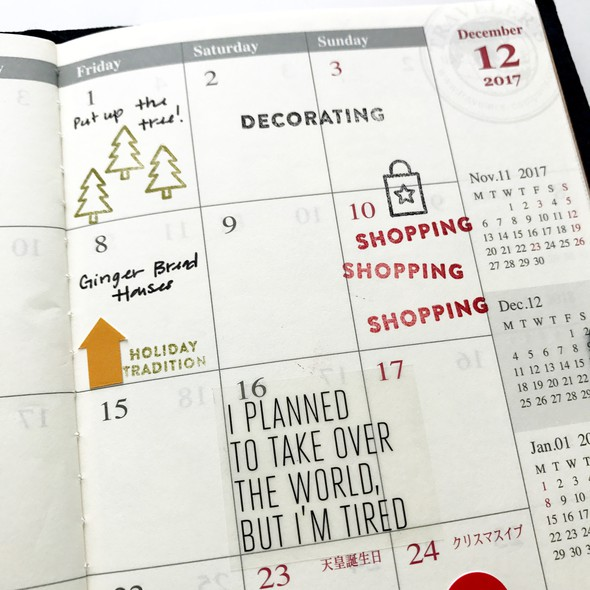 Friday
Saturday
Sunday
December
12
2017
1
Put up the
tree!
2
3
DECORATING
Nov.11 2017
M T W T F S S
1 2 3 4 5
6 7 8 9 10 11 12
13 14 15 16 17 18 19
20 21 22 23 24 25 26
27 28 29 30
8
Ginger Bread
Houses
HOLIDAY
TRADITION
9
10
SHOPPING
SHOPPING
SHOPPING
Dec.12
M T W T F S
1 2
4 5 6 7 8
11 12 13 14 15
18 19 20 21 22
25 26 27 28 29
15
16
17
I PLANNED
TO TAKE OVER
THE WORLD,
BUT I'M TIRED
Jan.01
M T W T
1 2 3
8 9 10
15 16 17
22 23 24
29 30 31
22
23
天皇誕生日
24
クリスマスイブ